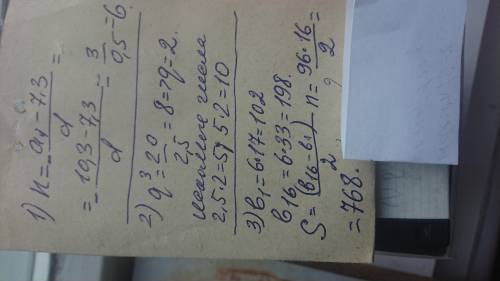 1) n = a₁ - 7,3 / d =
= - 10,3 - 7,3 / d = 3 / 0,5 = 6.
2) q³ = 20 / 2,5 = 8 => q = 2.
искомые числа
2,5·2 = 5; 5·2 = 10
3) b₁ = 6·17 = 102
b16 = 6·33 = 198.
S = (b16 - b1) / 2 · n = 96·16 / 2 =
= 768.